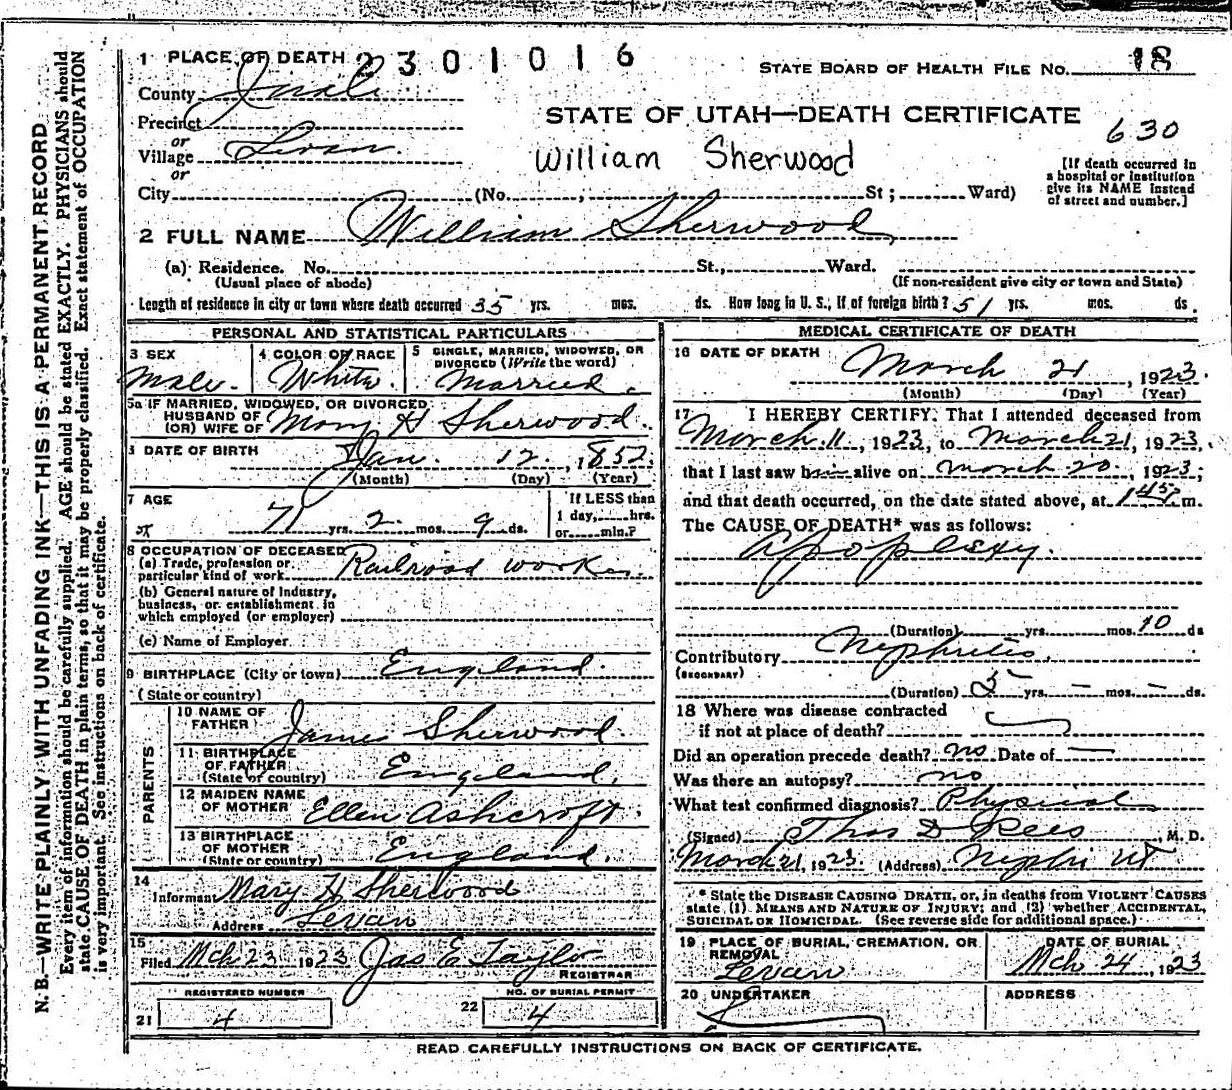 1 PLACE OF DEATH 2301016
STATE BOARD OF HEALTH FILE No. 18
County Juab
STATE OF UTAH—DEATH CERTIFICATE
Precinct
or
630
Village Levan.
or
William Sherwood
[If death occurred in
a hospital or institution
give its NAME instead
of street and number.]
City (No. , St ; Ward)
2 FULL NAME William Sherwood
(a) Residence. No. St., Ward.
(Usual place of abode) (If non-resident give city or town and State)
Length of residence in city or town where death occurred 35 yrs. mos. ds. How long in U. S., if of foreign birth? 51 yrs. mos. ds.
PERSONAL AND STATISTICAL PARTICULARS
3 SEX
Male.
4 COLOR OR RACE
White
5 SINGLE, MARRIED, WIDOWED, OR
DIVORCED (Write the word)
Married.
5a IF MARRIED, WIDOWED, OR DIVORCED
HUSBAND OF
(OR) WIFE OF Mary H Sherwood.
DATE OF BIRTH Jan. 12, 1852.
(Month) (Day) (Year)
7 AGE
71 yrs. 2 mos. 9 ds.
If LESS than
1 day, hrs.
or min.?
8 OCCUPATION OF DECEASED
(a) Trade, profession or
particular kind of work Railroad worker.
(b) General nature of industry,
business, or establishment in
which employed (or employer)
(c) Name of Employer
9 BIRTHPLACE (City or town) England.
(State or country)
PARENTS
10 NAME OF
FATHER James Sherwood.
11 BIRTHPLACE
OF FATHER
(State or country) England.
12 MAIDEN NAME
OF MOTHER Ellen Ashcroft.
13 BIRTHPLACE
OF MOTHER
(State or country) England.
14
Informant Mary H Sherwood
Address Levan
15
Filed Mch 23 1923 Jas E Taylor
REGISTRAR
REGISTERED NUMBER
21 4
NO. OF BURIAL PERMIT
22 4
MEDICAL CERTIFICATE OF DEATH
16 DATE OF DEATH March 21, 1923.
(Month) (Day) (Year)
17 I HEREBY CERTIFY. That I attended deceased from
March 11, 1923, to March 21, 1923,
that I last saw him alive on March 20, 1923;
and that death occurred, on the date stated above, at 1 45 m.
The CAUSE OF DEATH* was as follows:
Apoplexy.
(Duration) yrs. mos. 10 ds
Contributory Nephritis.
(SECONDARY)
(Duration) 5 yrs. — mos. — ds.
18 Where was disease contracted
if not at place of death?
Did an operation precede death? no Date of —
Was there an autopsy? no
What test confirmed diagnosis? Physical
(Signed) Thos D Rees, M. D.
March 21, 1923. (Address) Nephi UT
* State the DISEASE CAUSING DEATH, or, in deaths from VIOLENT CAUSES
state (1) MEANS AND NATURE OF INJURY; and (2) whether ACCIDENTAL,
SUICIDAL OR HOMICIDAL. (See reverse side for additional space.)
19 PLACE OF BURIAL, CREMATION, OR
REMOVAL
Levan
DATE OF BURIAL
Mch 24, 1923
20 UNDERTAKER
ADDRESS
READ CAREFULLY INSTRUCTIONS ON BACK OF CERTIFICATE.
N. B.—WRITE PLAINLY WITH UNFADING INK—THIS IS A PERMANENT RECORD
Every item of information should be carefully supplied. AGE should be stated EXACTLY. PHYSICIANS should
state CAUSE OF DEATH in plain terms, so that it may be properly classified. Exact statement of OCCUPATION
is very important. See instructions on back of certificate.